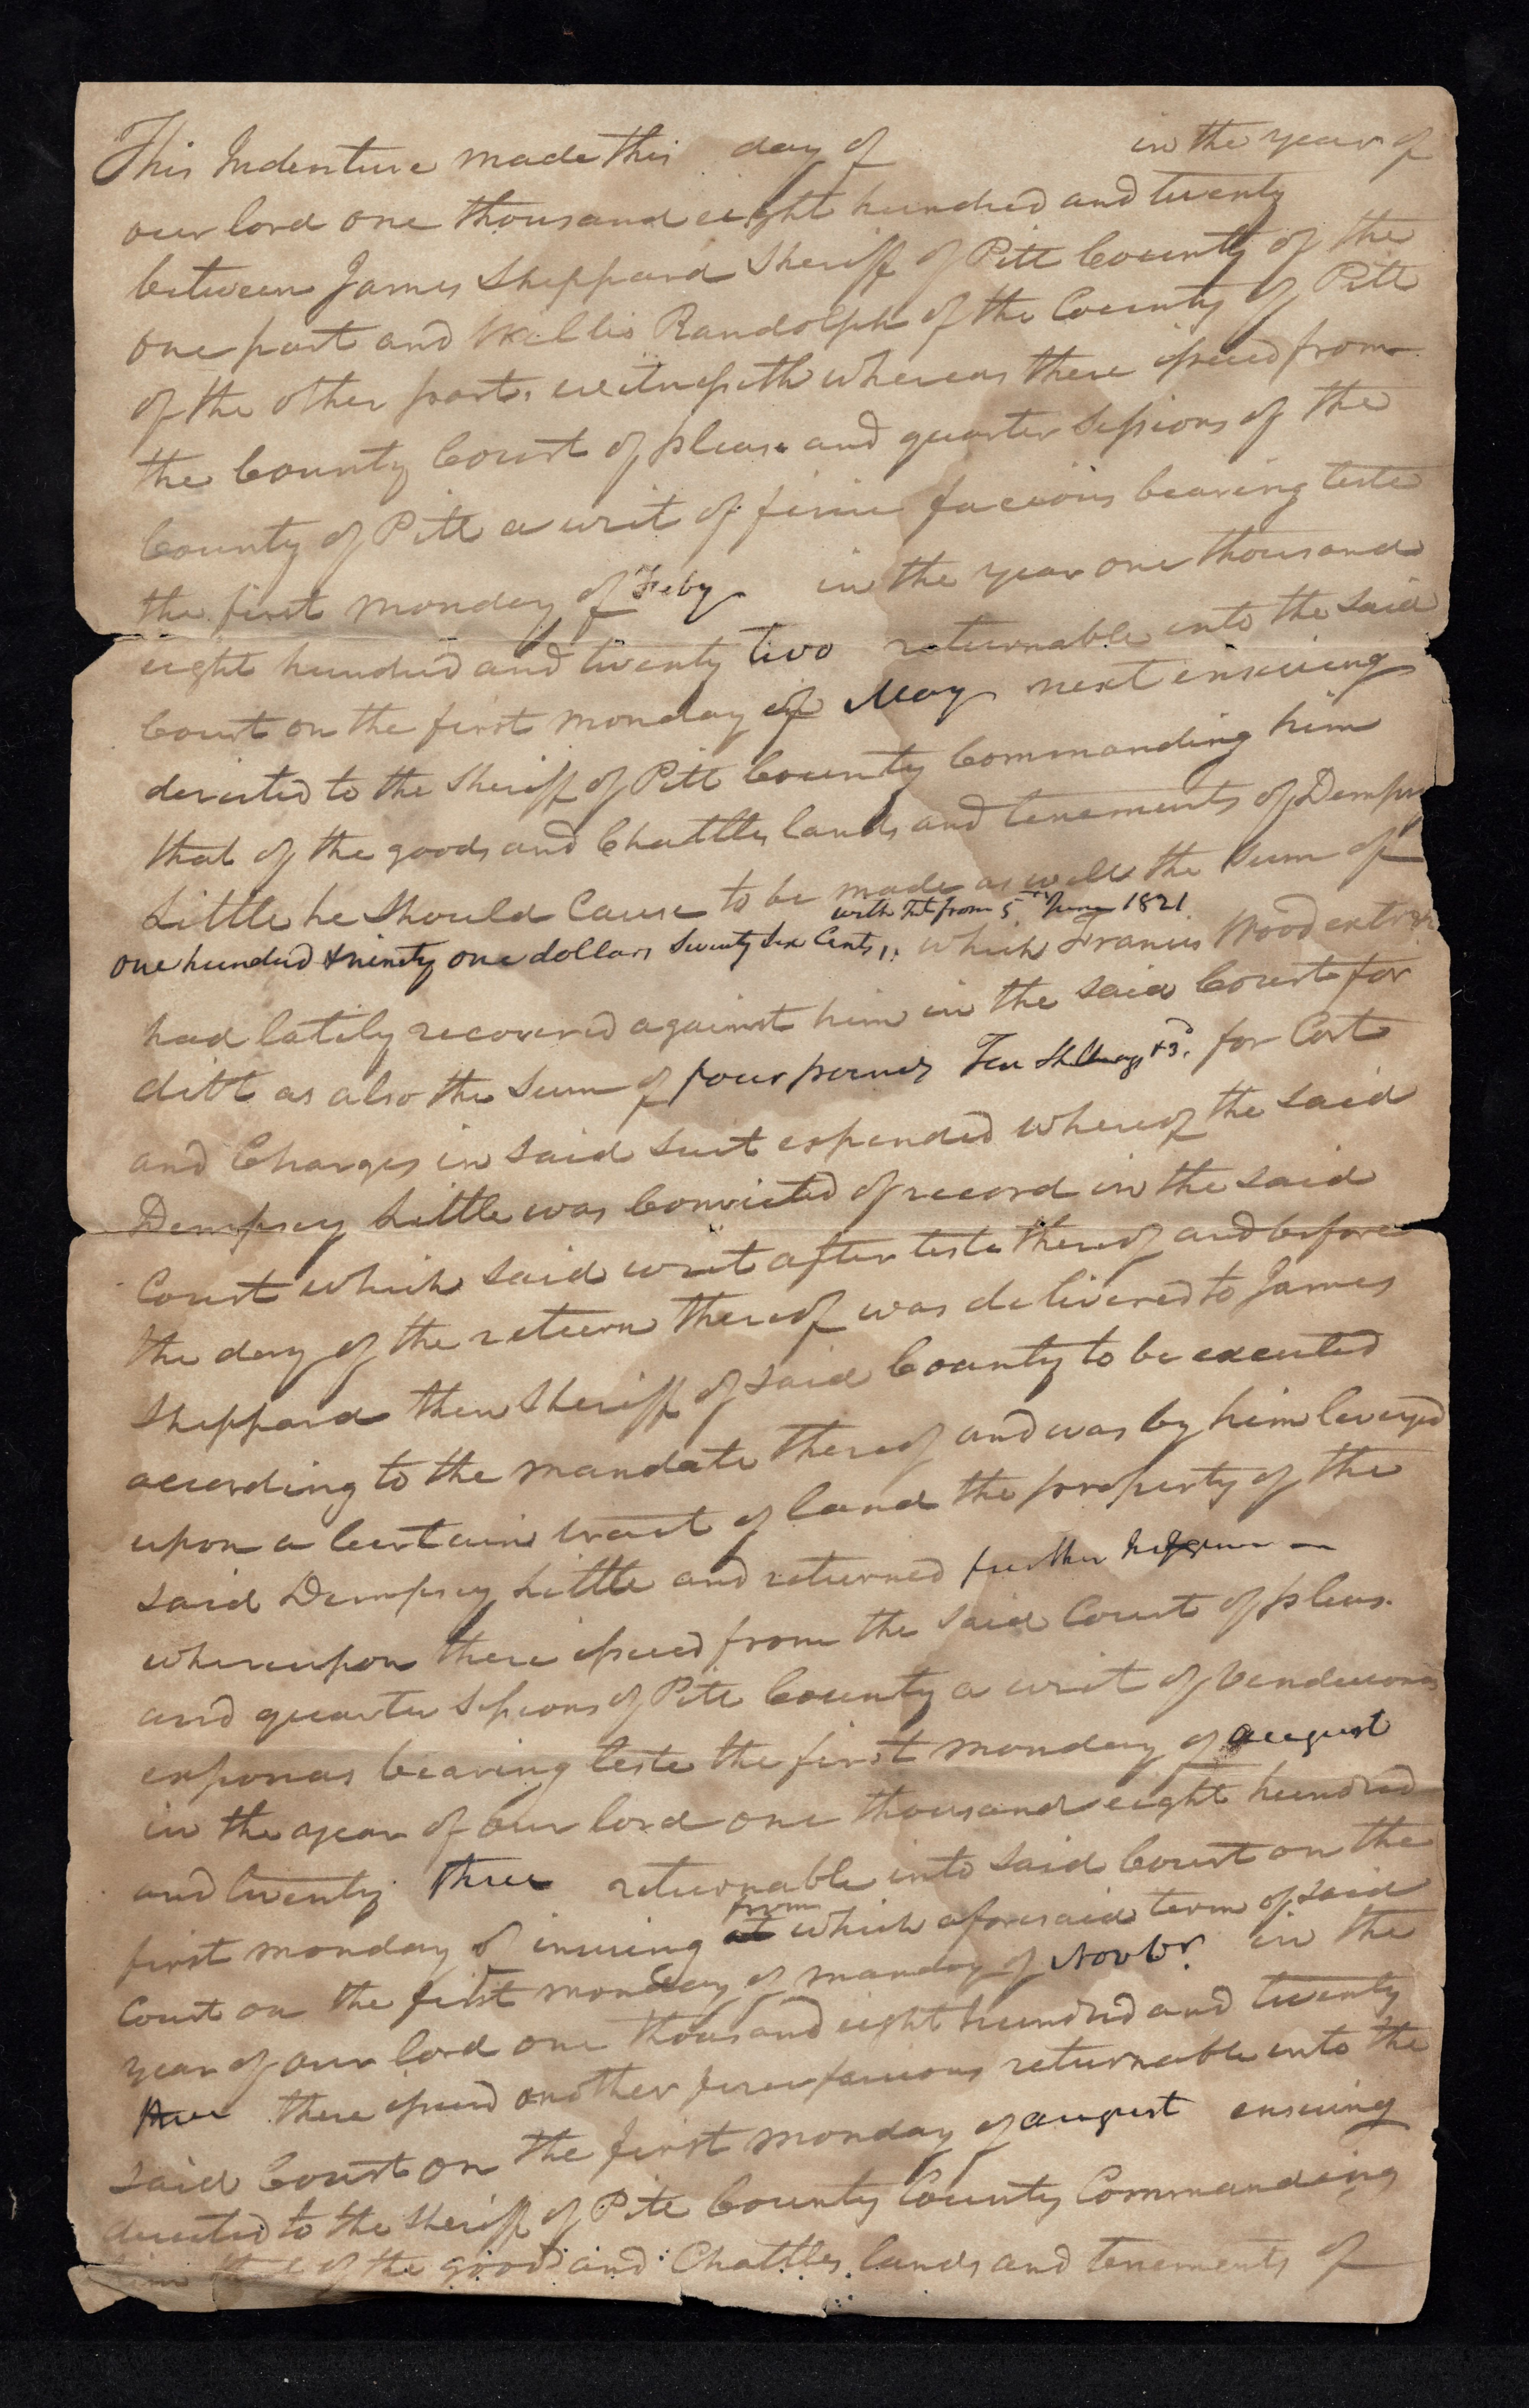 This Indenture made this day of in the year of
our lord one thousand eight hundred and twenty
between James Sheppard Sheriff of Pitt County of the
one part and Willis Randolph of the County of Pitt
of the other part, witnesseth whereas there issued from
the County Court of pleas and quarter Sessions of the
County of Pitt a writ of fieri facious bearing teste
the first monday of Feby in the year one thousand
eight hundred and twenty two returnable into the said
Court on the first monday of May next ensuing
dericted to the Sheriff of Pitt County Commanding him
that of the goods and Chattles lands and tenements of Dempsy
Little he should Cause to be made as well the Sum of
with Int from 5th June 1821
one hundred & ninety one dollars Seventy Six Cents, which Francis Wood
had lately recovered against him in the said Court for
debt as also the Sum of four pounds Ten Shillings & 3d. for Cost
and Charges in said Suit expended whereof the said
Dempsey Little was Convicted of record in the said
Court which said writ after teste thereof and before
the day of the return thereof was delivered to James
Sheppard then Sheriff of said County to be executed
according to the mandate thereof and was by him leveyed
upon a Certain tract of land the property of the
said Dempsey Little and returned further
whereupon there issued from the said Court of pleas
and quarter Sessions of Pitt County a writ of Vendicions
exponas bearing teste the first monday of august
in the year of our lord one thousand eight hundred
and twenty three returnable into said Court on the
from
first monday of insuing at which aforesaid term of said
Court on the first monday of monday of Novbr. in the
year of our lord one thousand eight hundred and twenty
three there issued another fierifacious returnable into the
said Court on the first monday of august ensuing
derected to the Sheriff of Pitt County County Commanding
him that of the goods and Chattles, lands and tenements of